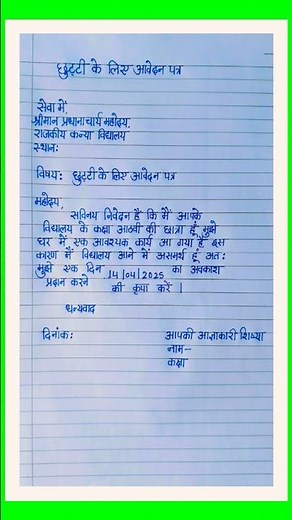 छुट्टी के लिए आवेदन पत्र
सेवा में,
श्रीमान प्रधानाचार्य महोदय,
राजकीय कन्या विद्यालय
स्थान:
विषय: छुट्टी के लिए आवेदन पत्र
महोदय,
सविनय निवेदन है कि मैं आपके
विद्यालय के कक्षा आठवी की छात्रा हूं मुझे
घर में एक आवश्यक कार्य आ गया है इस
कारण मैं विद्यालय आने में असमर्थ हूं अतः
मुझे एक दिन 14/04/2025 का अवकाश
प्रदान करने की कृपा करें |
धन्यवाद
दिनांक: आपकी आज्ञाकारी शिष्या
नाम-
कक्षा